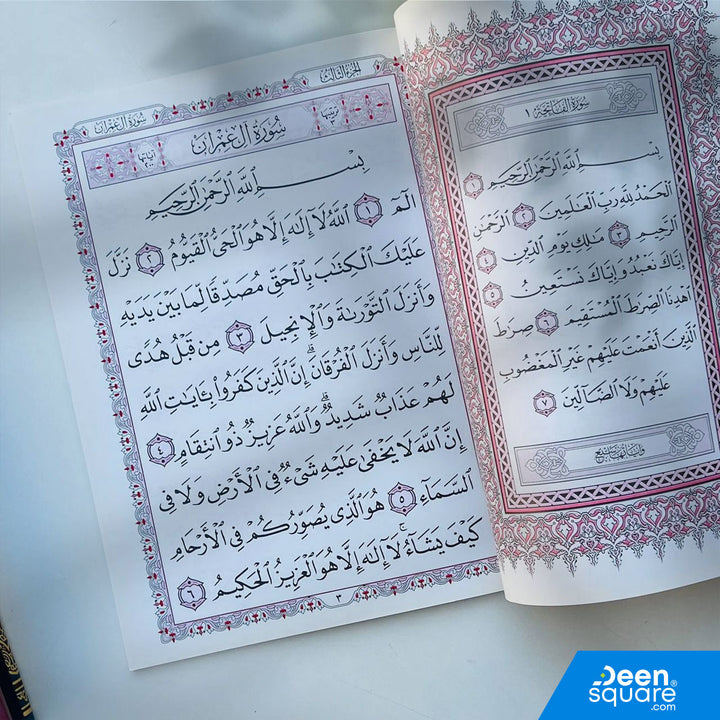 سُورَةُ الفَاتِحَةِ ١
بِسْمِ ٱللَّهِ ٱلرَّحْمَٰنِ ٱلرَّحِيمِ ١
ٱلْحَمْدُ لِلَّهِ رَبِّ ٱلْعَٰلَمِينَ ٢ ٱلرَّحْمَٰنِ
ٱلرَّحِيمِ ٣ مَٰلِكِ يَوْمِ ٱلدِّينِ ٤
إِيَّاكَ نَعْبُدُ وَإِيَّاكَ نَسْتَعِينُ ٥
ٱهْدِنَا ٱلصِّرَٰطَ ٱلْمُسْتَقِيمَ ٦ صِرَٰطَ
ٱلَّذِينَ أَنْعَمْتَ عَلَيْهِمْ غَيْرِ ٱلْمَغْضُوبِ
عَلَيْهِمْ وَلَا ٱلضَّآلِّينَ ٧
وَآيَاتُهَا سَبْعٌ
الجُزْءُ الثَّالِثُ
سُورَةُ آلِ عِمْرَان
سُورَةُ آلِ عِمْرَان
آيَاتُهَا
بِسْمِ ٱللَّهِ ٱلرَّحْمَٰنِ ٱلرَّحِيمِ
الٓمٓ ١ ٱللَّهُ لَآ إِلَٰهَ إِلَّا هُوَ ٱلْحَىُّ ٱلْقَيُّومُ ٢ نَزَّلَ
عَلَيْكَ ٱلْكِتَٰبَ بِٱلْحَقِّ مُصَدِّقًا لِّمَا بَيْنَ يَدَيْهِ
وَأَنزَلَ ٱلتَّوْرَىٰةَ وَٱلْإِنجِيلَ ٣ مِن قَبْلُ هُدًى
لِّلنَّاسِ وَأَنزَلَ ٱلْفُرْقَانَ ۗ إِنَّ ٱلَّذِينَ كَفَرُوا۟ بِـَٔايَٰتِ ٱللَّهِ
لَهُمْ عَذَابٌ شَدِيدٌ ۗ وَٱللَّهُ عَزِيزٌ ذُو ٱنتِقَامٍ ٤
إِنَّ ٱللَّهَ لَا يَخْفَىٰ عَلَيْهِ شَىْءٌ فِى ٱلْأَرْضِ وَلَا فِى
ٱلسَّمَآءِ ٥ هُوَ ٱلَّذِى يُصَوِّرُكُمْ فِى ٱلْأَرْحَامِ
كَيْفَ يَشَآءُ ۚ لَآ إِلَٰهَ إِلَّا هُوَ ٱلْعَزِيزُ ٱلْحَكِيمُ ٦
٣
Deen
square
.com